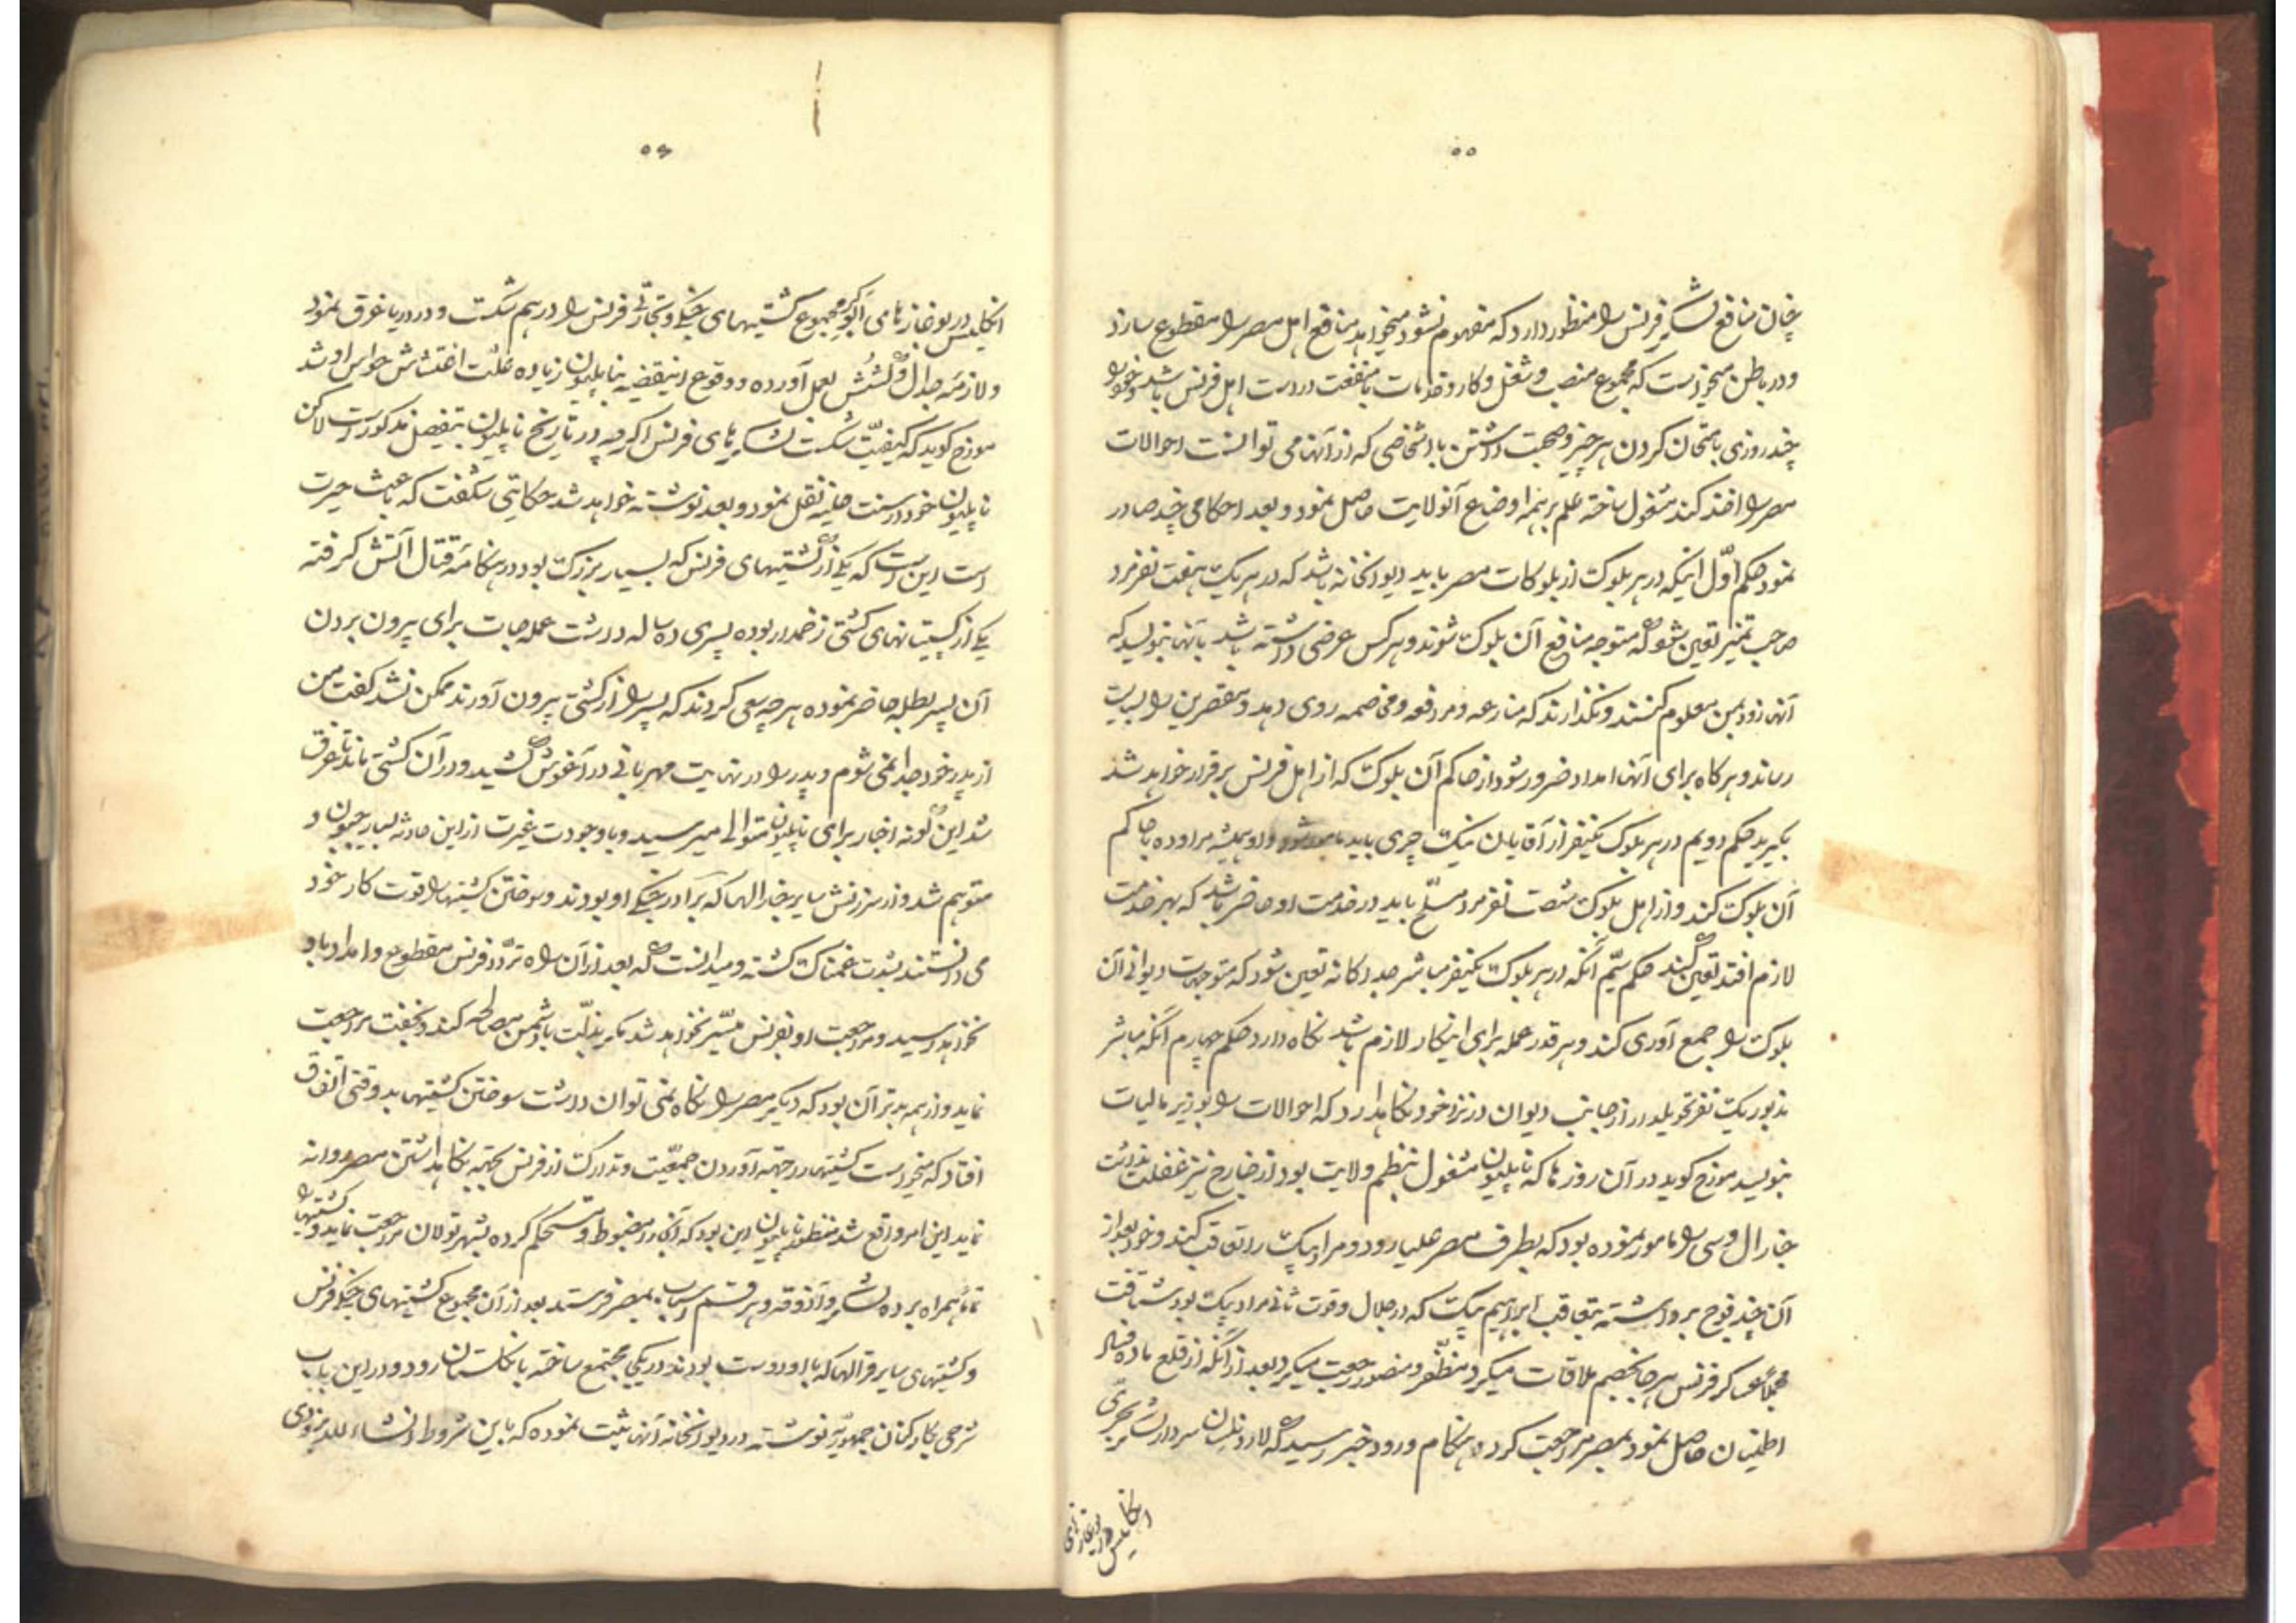 ۵۵
چنان منافع لشکر فرنس را منظور دارد که مفهوم نشود میخواهد منافع اهل مصر را مقطوع سازد
و در باطن میخواست که مجموع منصب و شغل و کار و خدمات با منفعت در دست اهل فرنس باشد و خود را
چند روزی بامتحان کردن هر چیز و صحبت داشتن با اشخاصی که از آنها می توانست احوالات
مصر را اخذ کند مشغول ساخته علم بر همه اوضاع آنولایت حاصل نمود و بعد احکامی چند صادر
نمود حکم اوّل اینکه در هر بلوک از بلوکات مصر باید دیوانخانه باشد که در هر یک هفت نفر مرد
صاحب تمیز تعین شود که متوجه منافع آن بلوک شوند و هر کس عرضی داشته باشد بآنها بنویسد که
آنها زود بمن معلوم کنند و نگذارند که منازعه و مرافعه و مخاصمه روی دهد و مقصرین را بسیاست
رساند و هرگاه برای آنها امداد ضرور شود از حاکم آن بلوک که از اهل فرنس برقرار خواهد شد
بگیرید حکم دویم در هر بلوک یکنفر از آقایان نیک چری باید مامور شود و او همیشه مراوده با حاکم
آن بلوک کند و از اهل بلوک شصت نفر مرد مسلّح باید در خدمت او حاضر باشد که بهر خدمت
لازم افتد تعین کند حکم سیّم آنکه در هر بلوک یکنفر مباشر جداگانه تعین شود که متوجهات دیوانی آن
بلوک را جمع آوری کند و هر قدر عمله برای اینکار لازم باشد نگاه دارد حکم چهارم آنکه مباشر
مذبور یک نفر تحویلدار از جانب دیوان در نزد خود نگاهدارد که احوالات را بوزیر مالیات
بنویسد مورخ گوید در آن روزها که ناپلیون مشغول بنظم ولایت بود از خارج نیز غفلت نداشت
جنارال دسی را مامور نموده بود که بطرف مصر علیا رود و مراد بیک را تعاقب کند و خود بعد از
آن چند فوج برداشته بتعاقب ابراهیم بیک که در جلال و قوت ثانی مراد بیک بود شتافت
مجملاً عساکر فرنس هر جا بخصم ملاقات میکرد مظفّر و منصور رجعت میکرد بعد از آنکه از قلع ماده فساد
اطمینان حاصل نمود بمصر مراجعت کرد و هنگام ورود خبر رسید که لارد نلسان سردار لشکر بحری
انگلیس در بوغاز نامی
۵۶
انگلیس در بوغاز نامی ابوکیر مجموع کشتیهای جنگی و تجارتی فرنس را در هم شکست و در دریا غرق نمود
و لازمه جدال و کشش بعمل آورده و وقوع اینقضیه بناپلیون زیاده علّت اغتشاش حواس او شد
مورخ گوید که کیفیّت شکست لشکرهای فرنس اگر چه در تاریخ ناپلیون بتفصیل مذکور است لاکن
ناپلیون خود در سنت هلینه نقل نمود و بعد نوشته خواهد شد حکایتی شگفت که باعث حیرت
است این است که یکی از کشتیهای فرنس که بسیار بزرگ بود در هنگامه قتال آتش گرفته
یکی از کپیتانهای کشتی زخمدار بوده پسری ده ساله داشت عمله جات برای بیرون بردن
آن پسر بطلبه حاضر نموده هر چه سعی کردند که پسر را از کشتی بیرون آورند ممکن نشد گفت من
از پدر خود جدا نمی شوم و پدر را در نهایت مهربانی در آغوش کشید و در آن کشتی ماند تا غرق
شد این گونه اخبار برای ناپلیون متوالی میرسید و با وجودت غیرت از این حادثه بسیار محزون و
متوهم شد و از سرزنش سایر جنارالها که برادر جنگی او بودند و سوختن کشتیها را قوت کار خود
می دانستند بشدت غمناک گشته و میدانست که بعد از آن راه تردّد فرنس مقطوع و امداد باو
نخواهد رسید و مراجعت او بفرنس میسّر نخواهد شد مگر بذلّت با دشمن مصالحه کند و بخفت مراجعت
نماید و از همه بدتر آن بود که دیگر مصر را نگاه نمی توان داشت سوختن کشتیها بد وقتی اتفاق
افتاد که میخواست کشتیها را جهة آوردن جمعیّت و تدارک از فرنس بجهة نگاهداشتن مصر روانه
نماید این امر واقع شد منظور ناپلیون این بود که آنجا را مضبوط و مستحکم کرده بشهر تولان مراجعت نماید و کشتیها را
تماماً همراه برده لشکر و آذوقه و هر قسم اسباب بمصر فرستد بعد از آن مجموع کشتیهای جنگی فرنس
و کشتیهای سایر قرالها که با او دوست بودند در یکجا مجتمع ساخته بانگلستان رود و در این باب
شرحی بکارکنان جمهوریّه نوشته در دیوانخانه آنها ثبت نموده که باین شروط انشاء الله بزودی